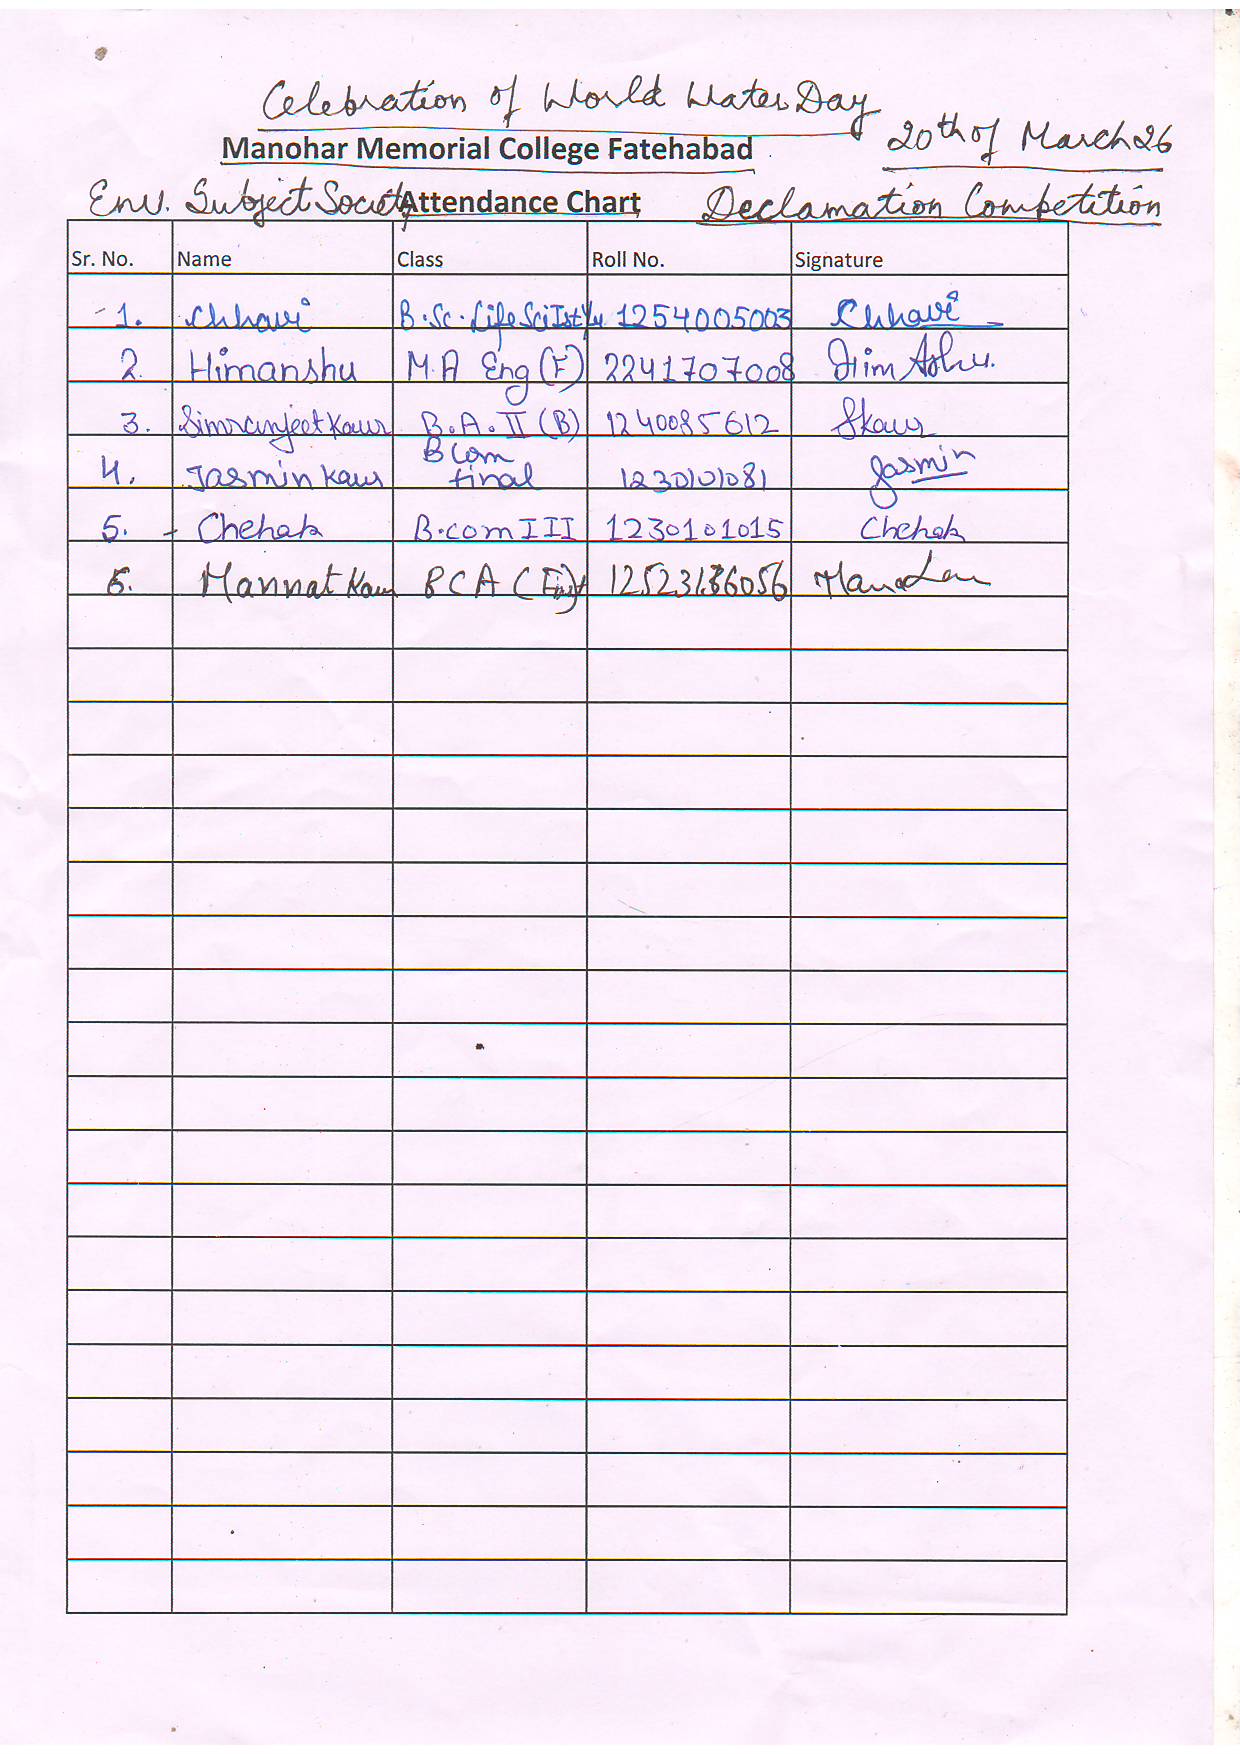 Celebration of World Water Day
Manohar Memorial College Fatehabad
20th of March 26
Env. Subject Society Attendance Chart Declamation Competition
Sr. No. Name Class Roll No. Signature
1. Chhavi B.Sc. Life Sci Ist Yr 1254005003 Chhavi
2. Himanshu M.A Eng (F) 2241707008 Himanshu.
3. Simranjeet Kaur B.A. II (B) 1240085612 Skaur
4. Jasmin Kaur B Com final 1230101081 Jasmin
5. Chehak B.com III 1230101015 Chehak
6. Mannat Kaur BCA (First)